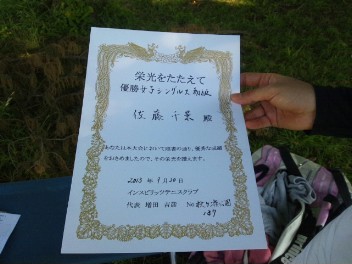 栄光をたたえて
優勝 女子シングルス 初級
佐藤 千景 殿
あなたは本大会において頭書の通り、優秀な成績
をおさめましたので、その栄光を讃えます。
2013年 9月20日
インスピリッツテニスクラブ
代表 増田 吉彦 No.
187